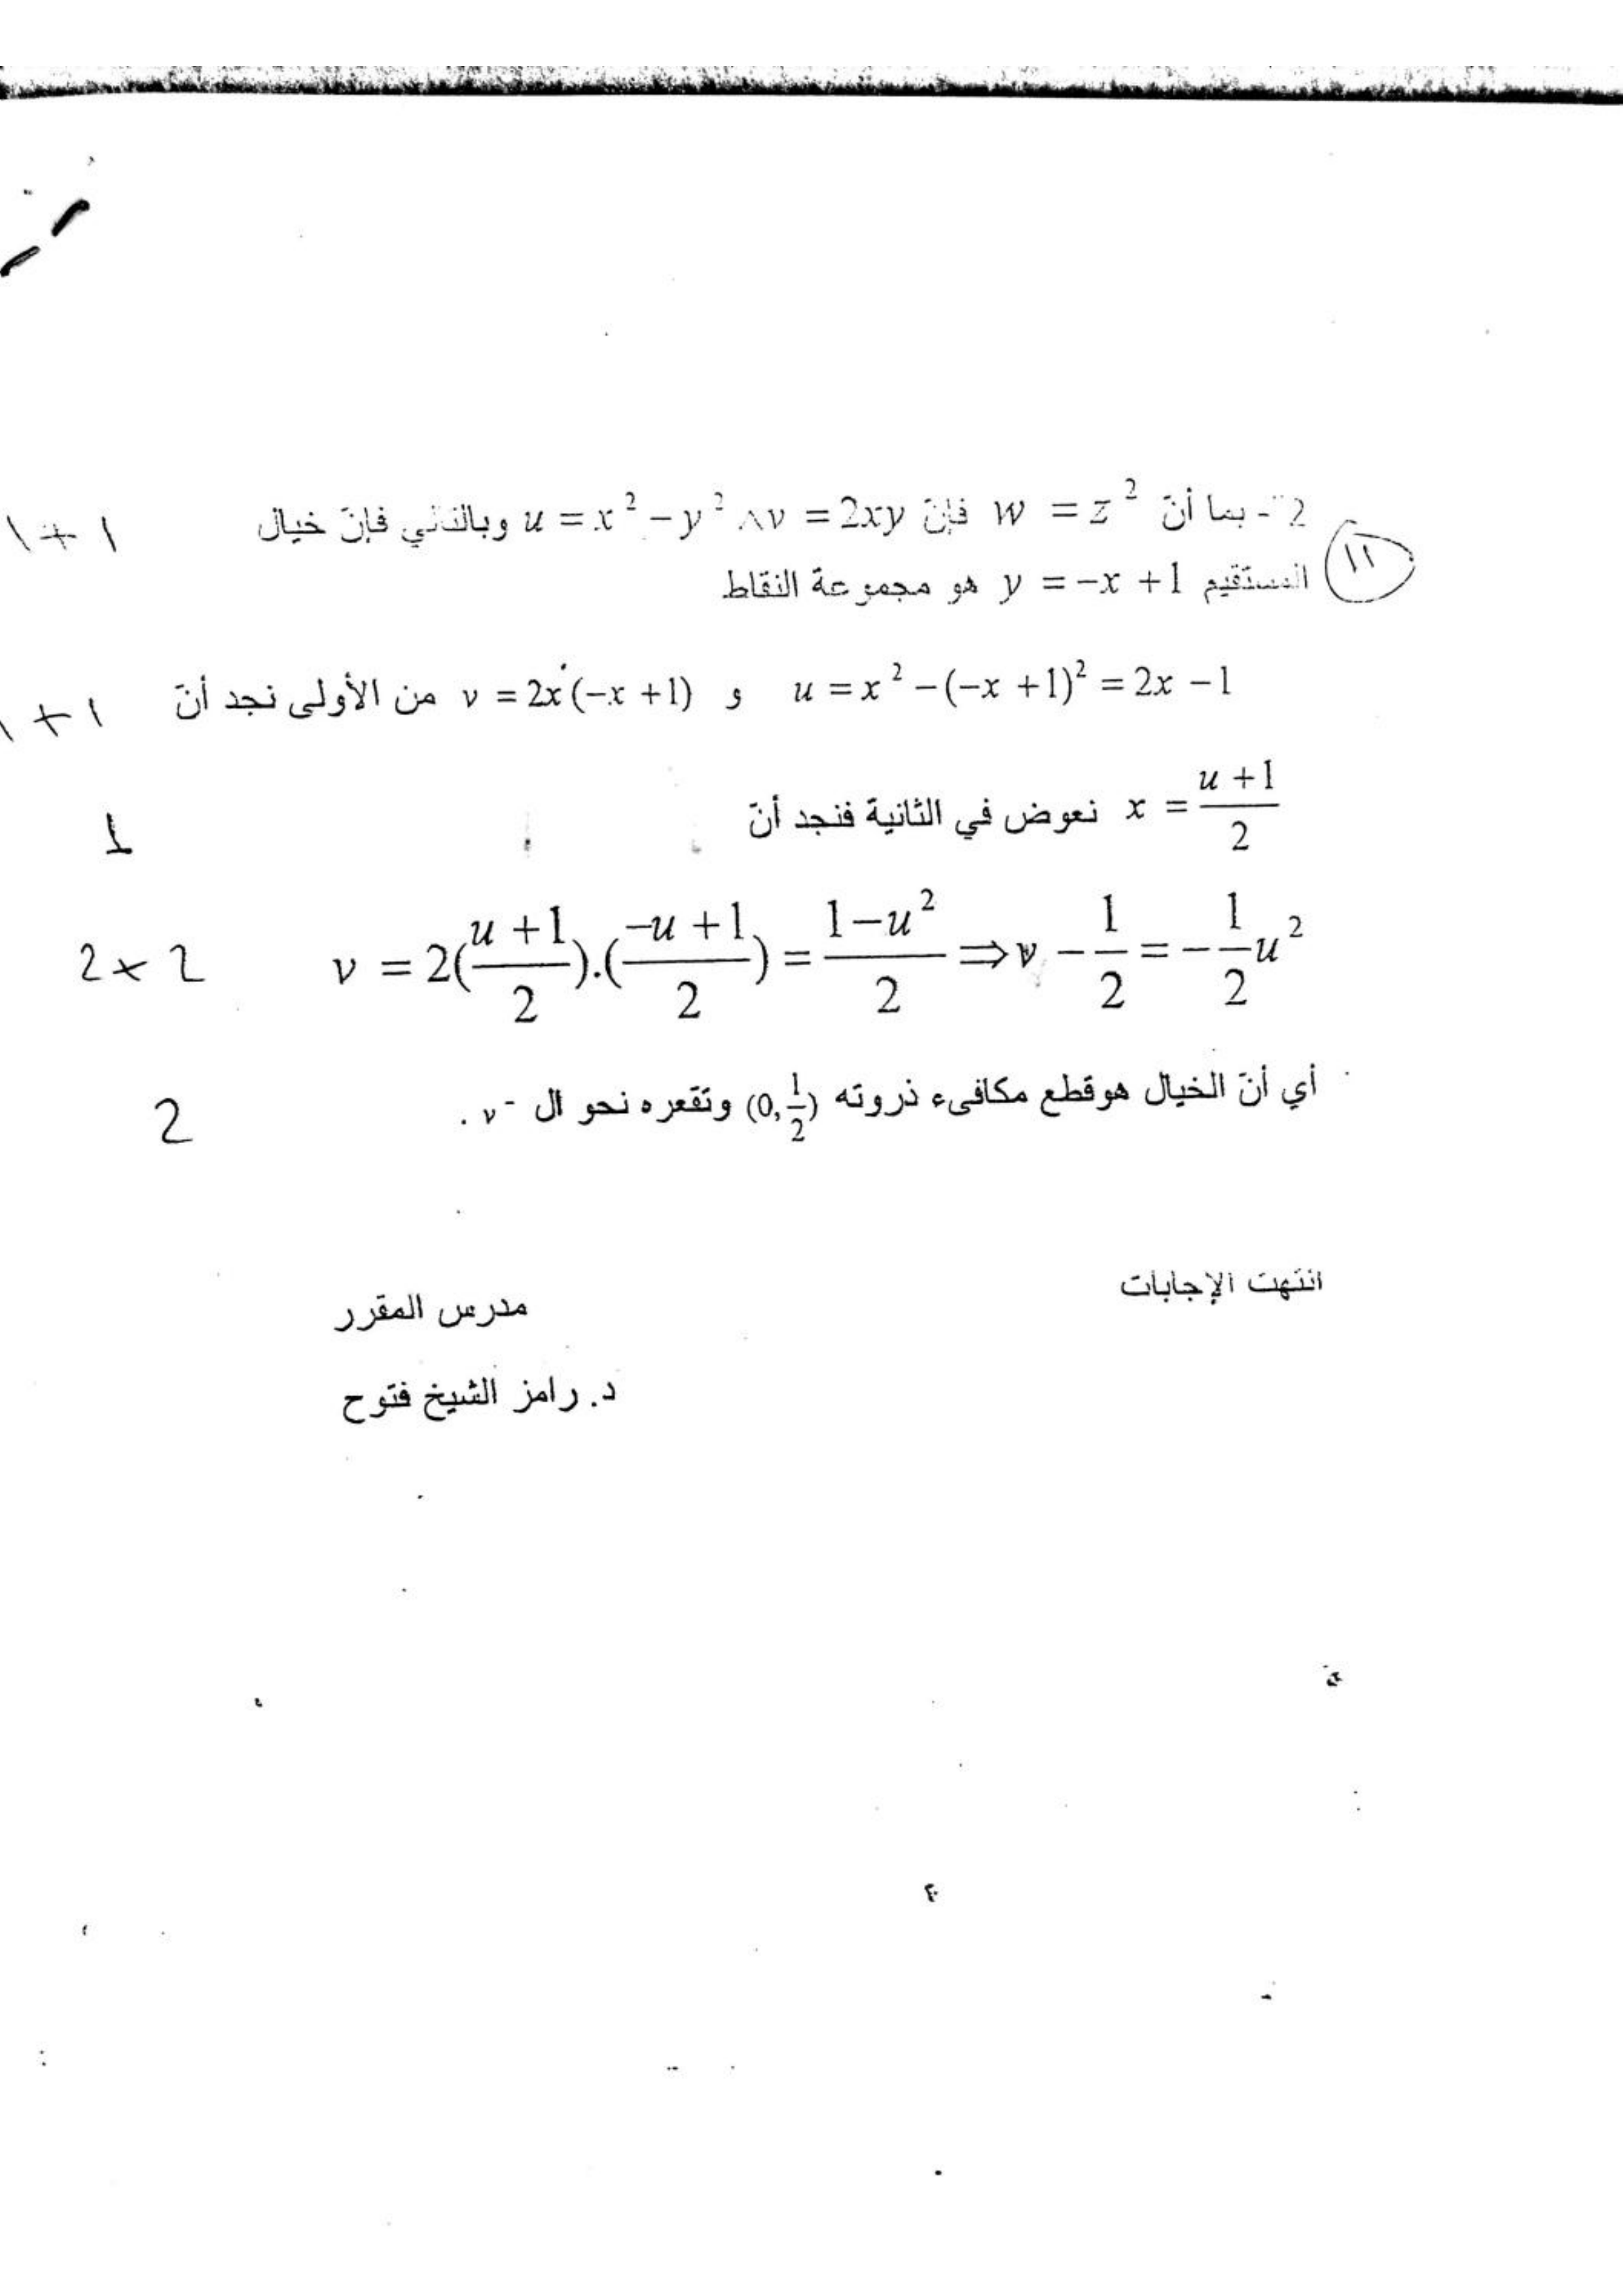 2- بما أنّ w = z² فإنّ u = x² − y² ∧ v = 2xy وبالتالي فإنّ خيال
١+١
١١
المستقيم y = −x + 1 هو مجموعة النقاط
u = x² − (−x + 1)² = 2x − 1 و v = 2x(−x + 1) من الأولى نجد أنّ
١+١
x = (u + 1)/2 نعوض في الثانية فنجد أنّ
1
v = 2((u + 1)/2).((−u + 1)/2) = (1 − u²)/2 ⇒ v − 1/2 = −1/2 u²
2×2
أي أنّ الخيال هوقطع مكافىء ذروته (0, 1/2) وتقعره نحو ال v⁻ .
2
انتهت الإجابات
مدرس المقرر
د. رامز الشيخ فتوح